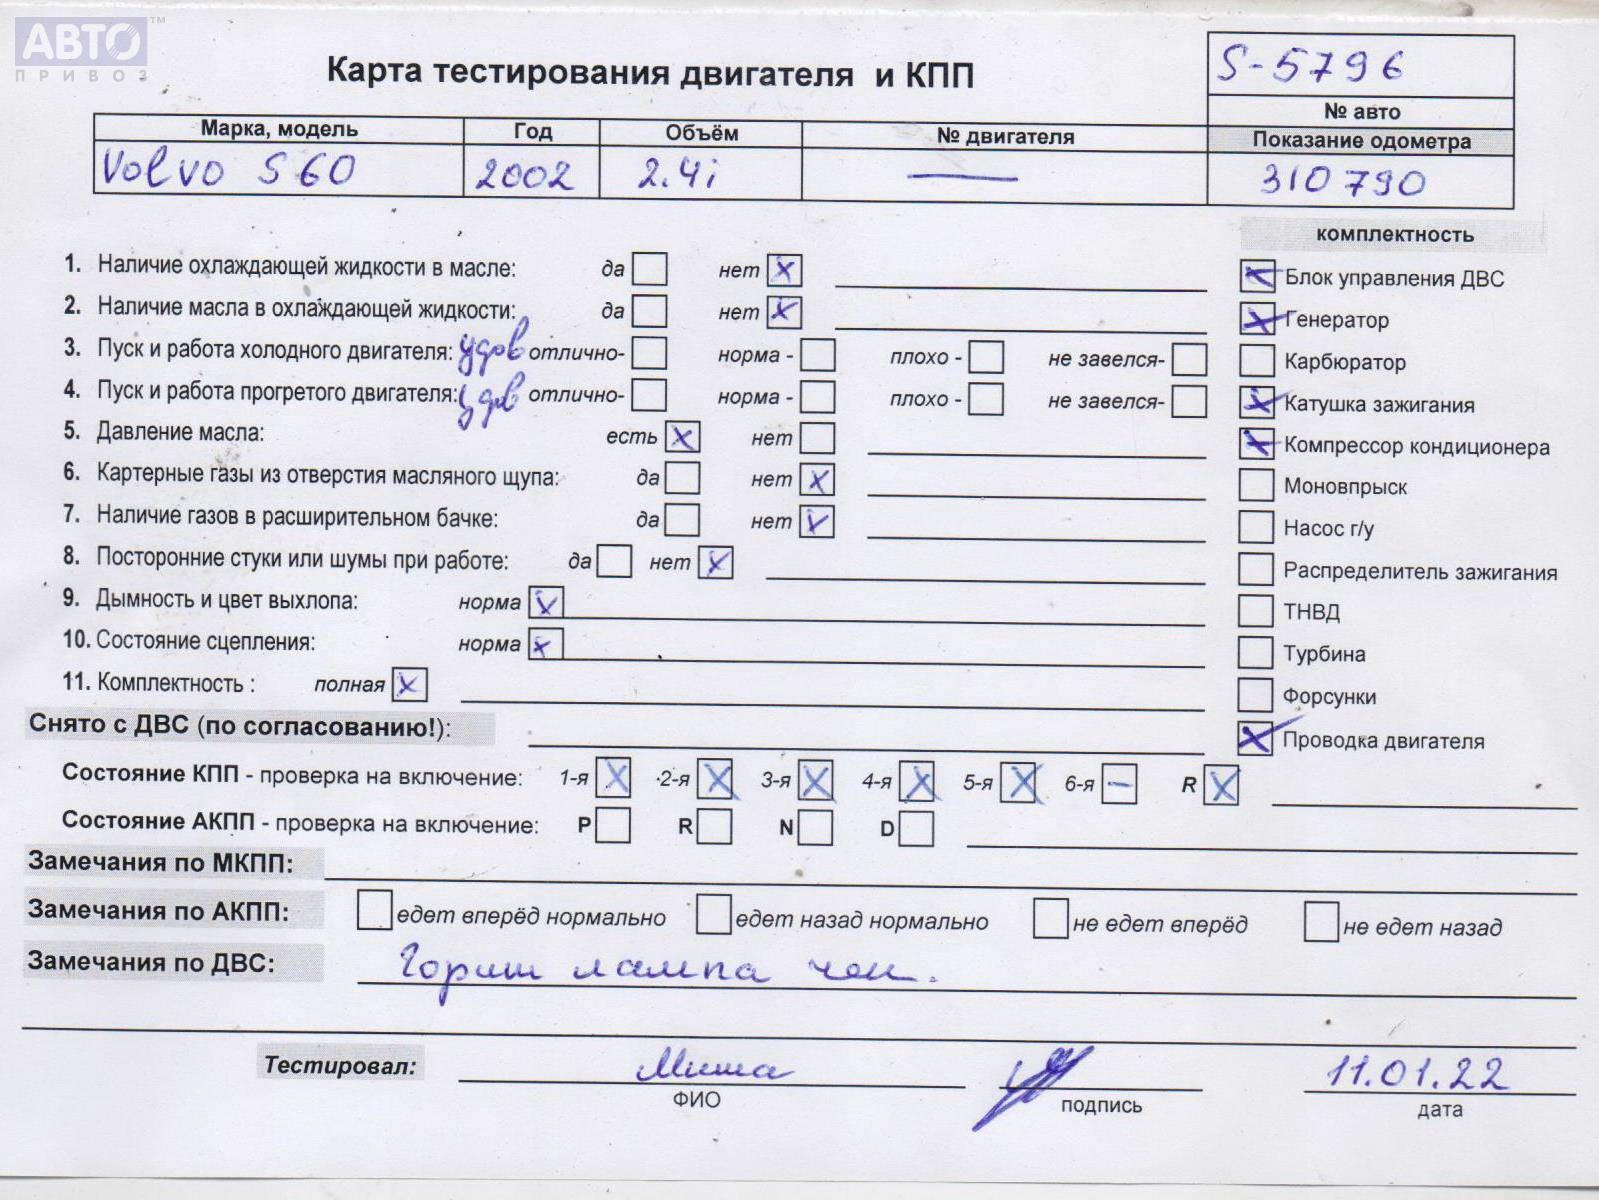 АВТО ™
ПРИВОЗ
Карта тестирования двигателя и КПП
S-5796
№ авто
Марка, модель Год Объём № двигателя Показание одометра
Volvo S60 2002 2.4i — 310790
комплектность
1. Наличие охлаждающей жидкости в масле: да нет x
Блок управления ДВС
2. Наличие масла в охлаждающей жидкости: да нет x
Генератор
3. Пуск и работа холодного двигателя: удов отлично- норма - плохо - не завелся-
Карбюратор
4. Пуск и работа прогретого двигателя: удов отлично- норма - плохо - не завелся-
Катушка зажигания
5. Давление масла: есть x нет
Компрессор кондиционера
6. Картерные газы из отверстия масляного щупа: да нет x
Моновпрыск
7. Наличие газов в расширительном бачке: да нет v
Насос г/у
8. Посторонние стуки или шумы при работе: да нет x
Распределитель зажигания
9. Дымность и цвет выхлопа: норма v
ТНВД
10. Состояние сцепления: норма x
Турбина
11. Комплектность : полная x
Форсунки
Снято с ДВС (по согласованию!):
Проводка двигателя
Состояние КПП - проверка на включение: 1-я x 2-я x 3-я x 4-я x 5-я x 6-я — R x
Состояние АКПП - проверка на включение: P R N D
Замечания по МКПП:
Замечания по АКПП: едет вперёд нормально едет назад нормально не едет вперёд не едет назад
Замечания по ДВС: Горит лампа чек.
Тестировал: Миша 11.01.22
ФИО подпись дата